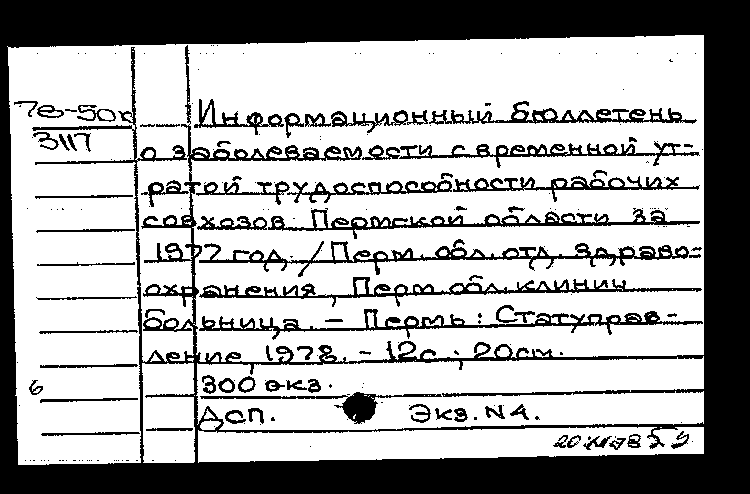 78-50к
3117
Информационный бюллетень
о заболеваемости с временной ут-
ратой трудоспособности рабочих
совхозов Пермской области за
1977 год. / Перм. обл. отд. здраво-
охранения, Перм. обл. клинич.
больница. - Пермь: Статуправ-
ление, 1978. - 12с.; 20см.
300 экз.
6
ДСП. Экз. N4.